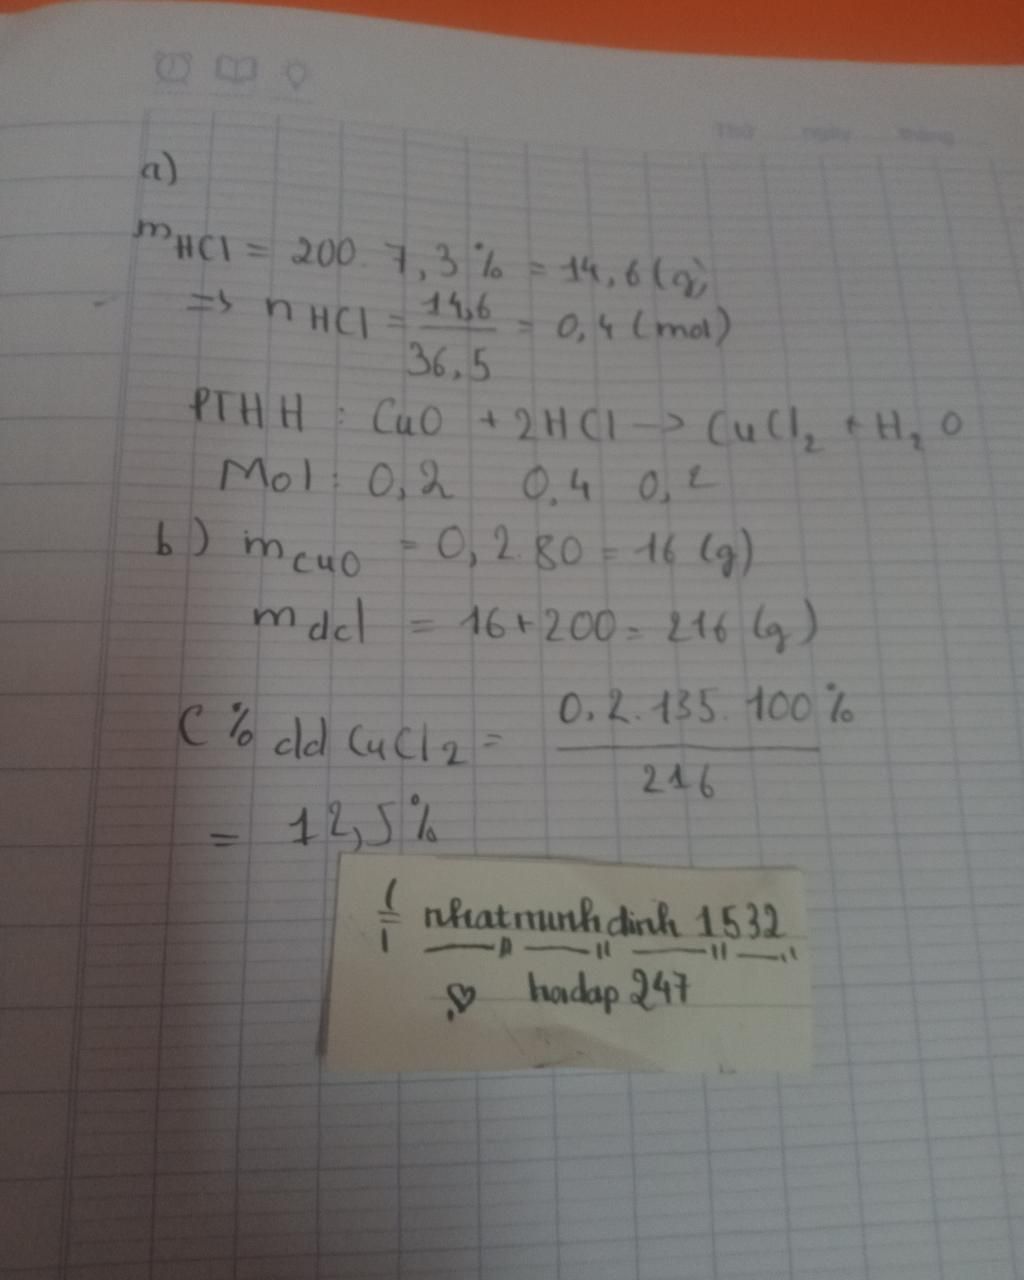 Thứ ngày tháng
a)
mHCl = 200. 7,3% = 14,6(g)
=> nHCl = 14,6/36,5 = 0,4 (mol)
PTHH : CuO + 2HCl -> CuCl₂ + H₂O
Mol : 0,2 0,4 0,2
b) mCuO = 0,2.80 = 16 (g)
mdcl = 16+200= 216 (g)
C% dd CuCl₂ = 0,2.135.100%/216
= 12,5%
nhatminhdinh 1532
hoidap 247